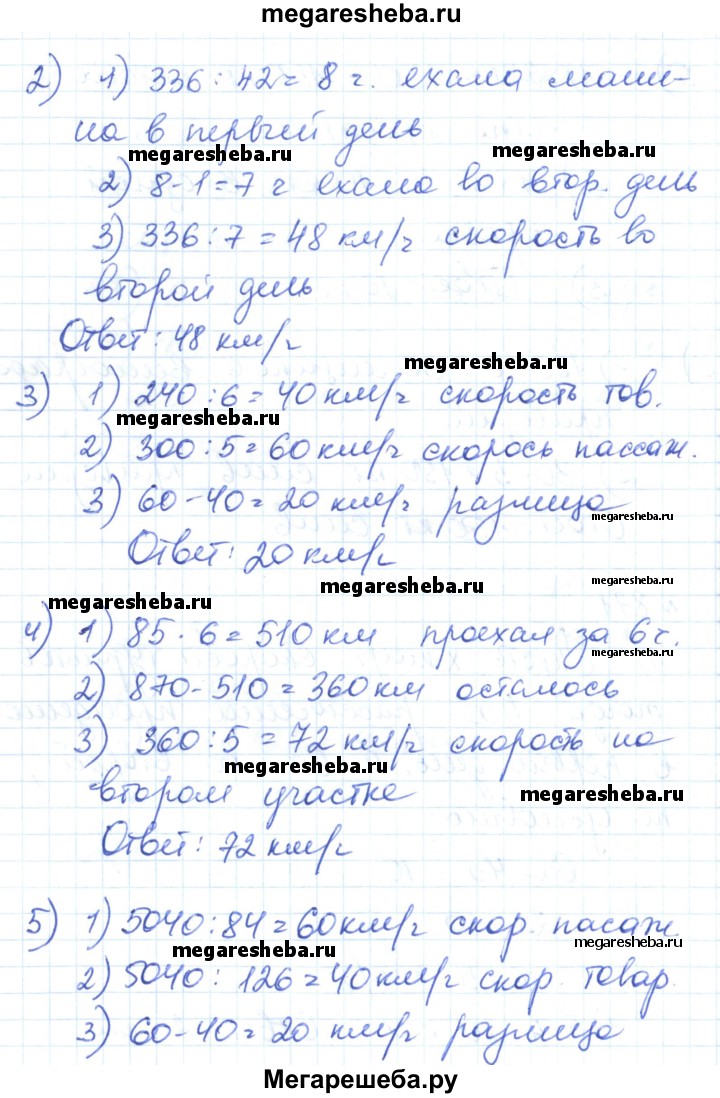 megaresheba.ru
2) 1) 336 : 42 = 8 ч. ехала маши-
на в первый день
megaresheba.ru
megaresheba.ru
2) 8-1=7 ч ехала во втор. день
3) 336 : 7 = 48 км/ч скорость во
второй день
Ответ: 48 км/ч
megaresheba.ru
3) 1) 240 : 6 = 40 км/ч скорость тов.
megaresheba.ru
2) 300 : 5 = 60 км/ч скорось пассаж.
3) 60-40=20 км/ч разница
megaresheba.ru
Ответ: 20 км/ч
megaresheba.ru
megaresheba.ru
megaresheba.ru
4) 1) 85 · 6 = 510 км проехал за 6 ч.
megaresheba.ru
2) 870-510=360 км осталось
3) 360 : 5 = 72 км/ч скорость на
megaresheba.ru
втором участке
megaresheba.ru
Ответ: 72 км/ч
5) 1) 5040 : 84 = 60 км/ч скор. пасаж
megaresheba.ru
megaresheba.ru
2) 5040 : 126 = 40 км/ч скор. товар.
3) 60-40=20 км/ч разница
Мегарешеба.ру